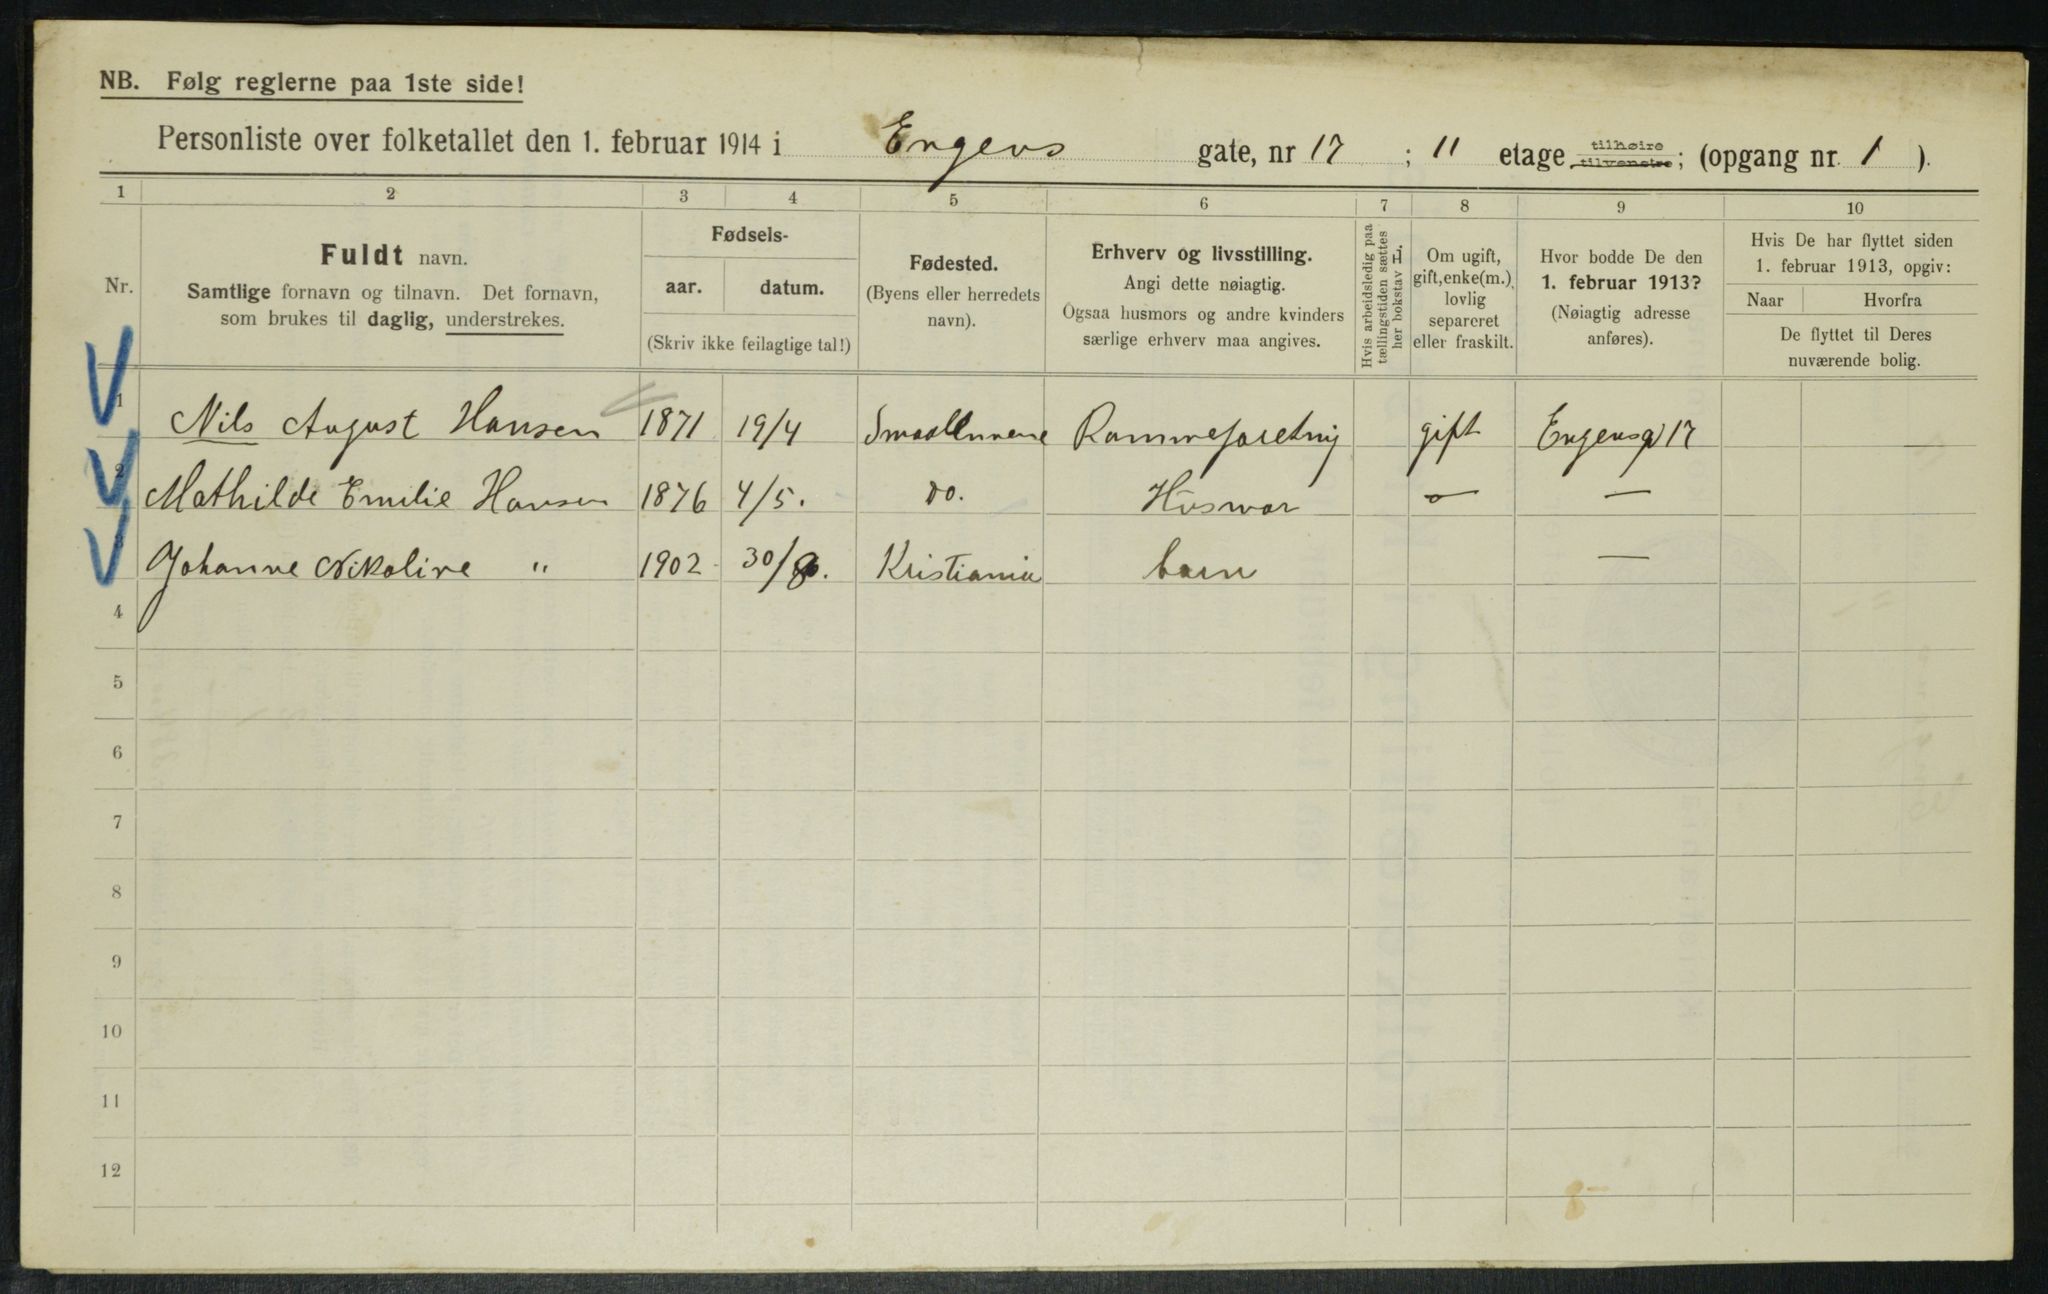 NB. Følg reglerne paa 1ste side!
Personliste over folketallet den 1. februar 1914 i Engens gate, nr 17 ; 11 etage tilhøire tilvenstre; (opgang nr. 1 ).
1 2 3 4 5 6 7 8 9 10
Nr.
Fuldt navn.
Samtlige fornavn og tilnavn. Det fornavn,
som brukes til daglig, understrekes.
Fødsels-
aar. datum.
(Skriv ikke feilagtige tal!)
Fødested.
(Byens eller herredets
navn).
Erhverv og livsstilling.
Angi dette nøiagtig.
Ogsaa husmors og andre kvinders
særlige erhverv maa angives.
Hvis arbeidsledig paa
tællingstiden sættes
her bokstav L.
Om ugift,
gift, enke(m.),
lovlig
separeret
eller fraskilt.
Hvor bodde De den
1. februar 1913?
(Nøiagtig adresse
anføres).
Hvis De har flyttet siden
1. februar 1913, opgiv:
Naar Hvorfra
De flyttet til Deres
nuværende bolig.
1 Nils August Hansen 1871 19/4 gift Engensg 17
2 Mathilde Emilie Hansen 1876 4/5. do. Husmor — —
3 Johanne Nikoline " 1902 30/8. Kristiania barn —
4
5
6
7
8
9
10
11
12